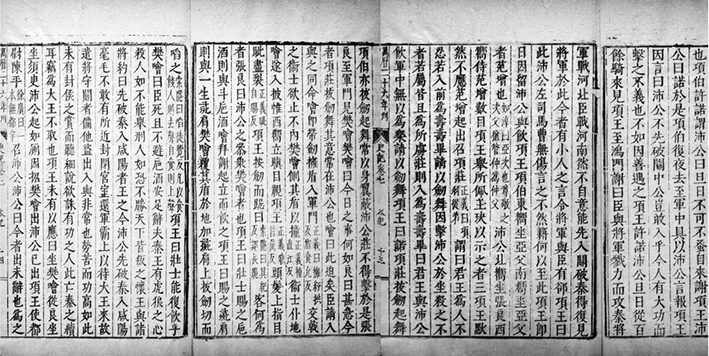 也項伯許諾謂沛公曰旦日不可不蚤自來謝項王沛
公曰諾於是項伯復夜去至軍中具以沛公言報項王
因言曰沛公不先破關中公豈敢入乎今人有大功而
擊之不義也不如因善遇之項王許諾沛公旦日從百
餘騎來見項王至鴻門謝曰臣與將軍戮力而攻秦將
軍戰河北臣戰河南然不自意能先入關破秦得復見
將軍於此今者有小人之言令將軍與臣有郤項王曰
此沛公左司馬曹無傷言之不然籍何以至此項王即
日因留沛公與飲項王項伯東嚮坐亞父南嚮坐亞父
者范增也如淳曰亞次也尊敬之次父猶管仲為仲父沛公北嚮坐張良西
嚮侍范增數目項王舉所佩玉玦以示之者三項王默
然不應范增起出召項莊正義曰項羽從弟謂曰君王為人不
忍若入前為壽壽畢請以劒舞因擊沛公於坐殺之不
者若屬皆且為所虜莊則入為壽壽畢曰君王與沛公
飲軍中無以為樂請以劒舞項王曰諾項莊拔劒起舞
萬曆二十六年刊 史記卷七 本紀 十三
項伯亦拔劒起舞常以身翼蔽沛公莊不得擊於是張
良至軍門見樊噲樊噲曰今日之事何如良曰甚急今
者項莊拔劒舞其意常在沛公也噲曰此迫矣臣請入
與之同命噲即帶劒擁盾入軍門交戟
之衞士欲止不內樊噲側其盾以撞衞士仆地
噲遂入披帷西嚮立瞋目視項王頭髮上指目
眦盡裂項王按劒而跽曰客何為
者張良曰沛公之參乘樊噲者也項王曰壯士賜之卮
酒則與斗卮酒噲拜謝起立而飲之項王曰賜之彘肩
則與一生彘肩樊噲覆其盾於地加彘肩上拔劒切而
啗之項王曰壯士能復飲乎
樊噲曰臣死且不避卮酒安足辭夫秦王有虎狼之心
殺人如不能舉刑人如恐不勝天下皆叛之懷王與諸
將約曰先破秦入咸陽者王之今沛公先破秦入咸陽
毫毛不敢有所近封閉宮室還軍霸上以待大王來故
遣將守關者備他盜出入與非常也勞苦而功高如此
未有封侯之賞而聽細說欲誅有功之人此亡秦之續
耳竊為大王不取也項王未有以應曰坐樊噲從良坐
坐須臾沛公起如廁因招樊噲出沛公已出項王使都
尉陳平徐廣曰一本無都字召沛公沛公曰今者出未辭也為之
萬曆二十六年刊 史記卷七 本紀 十四